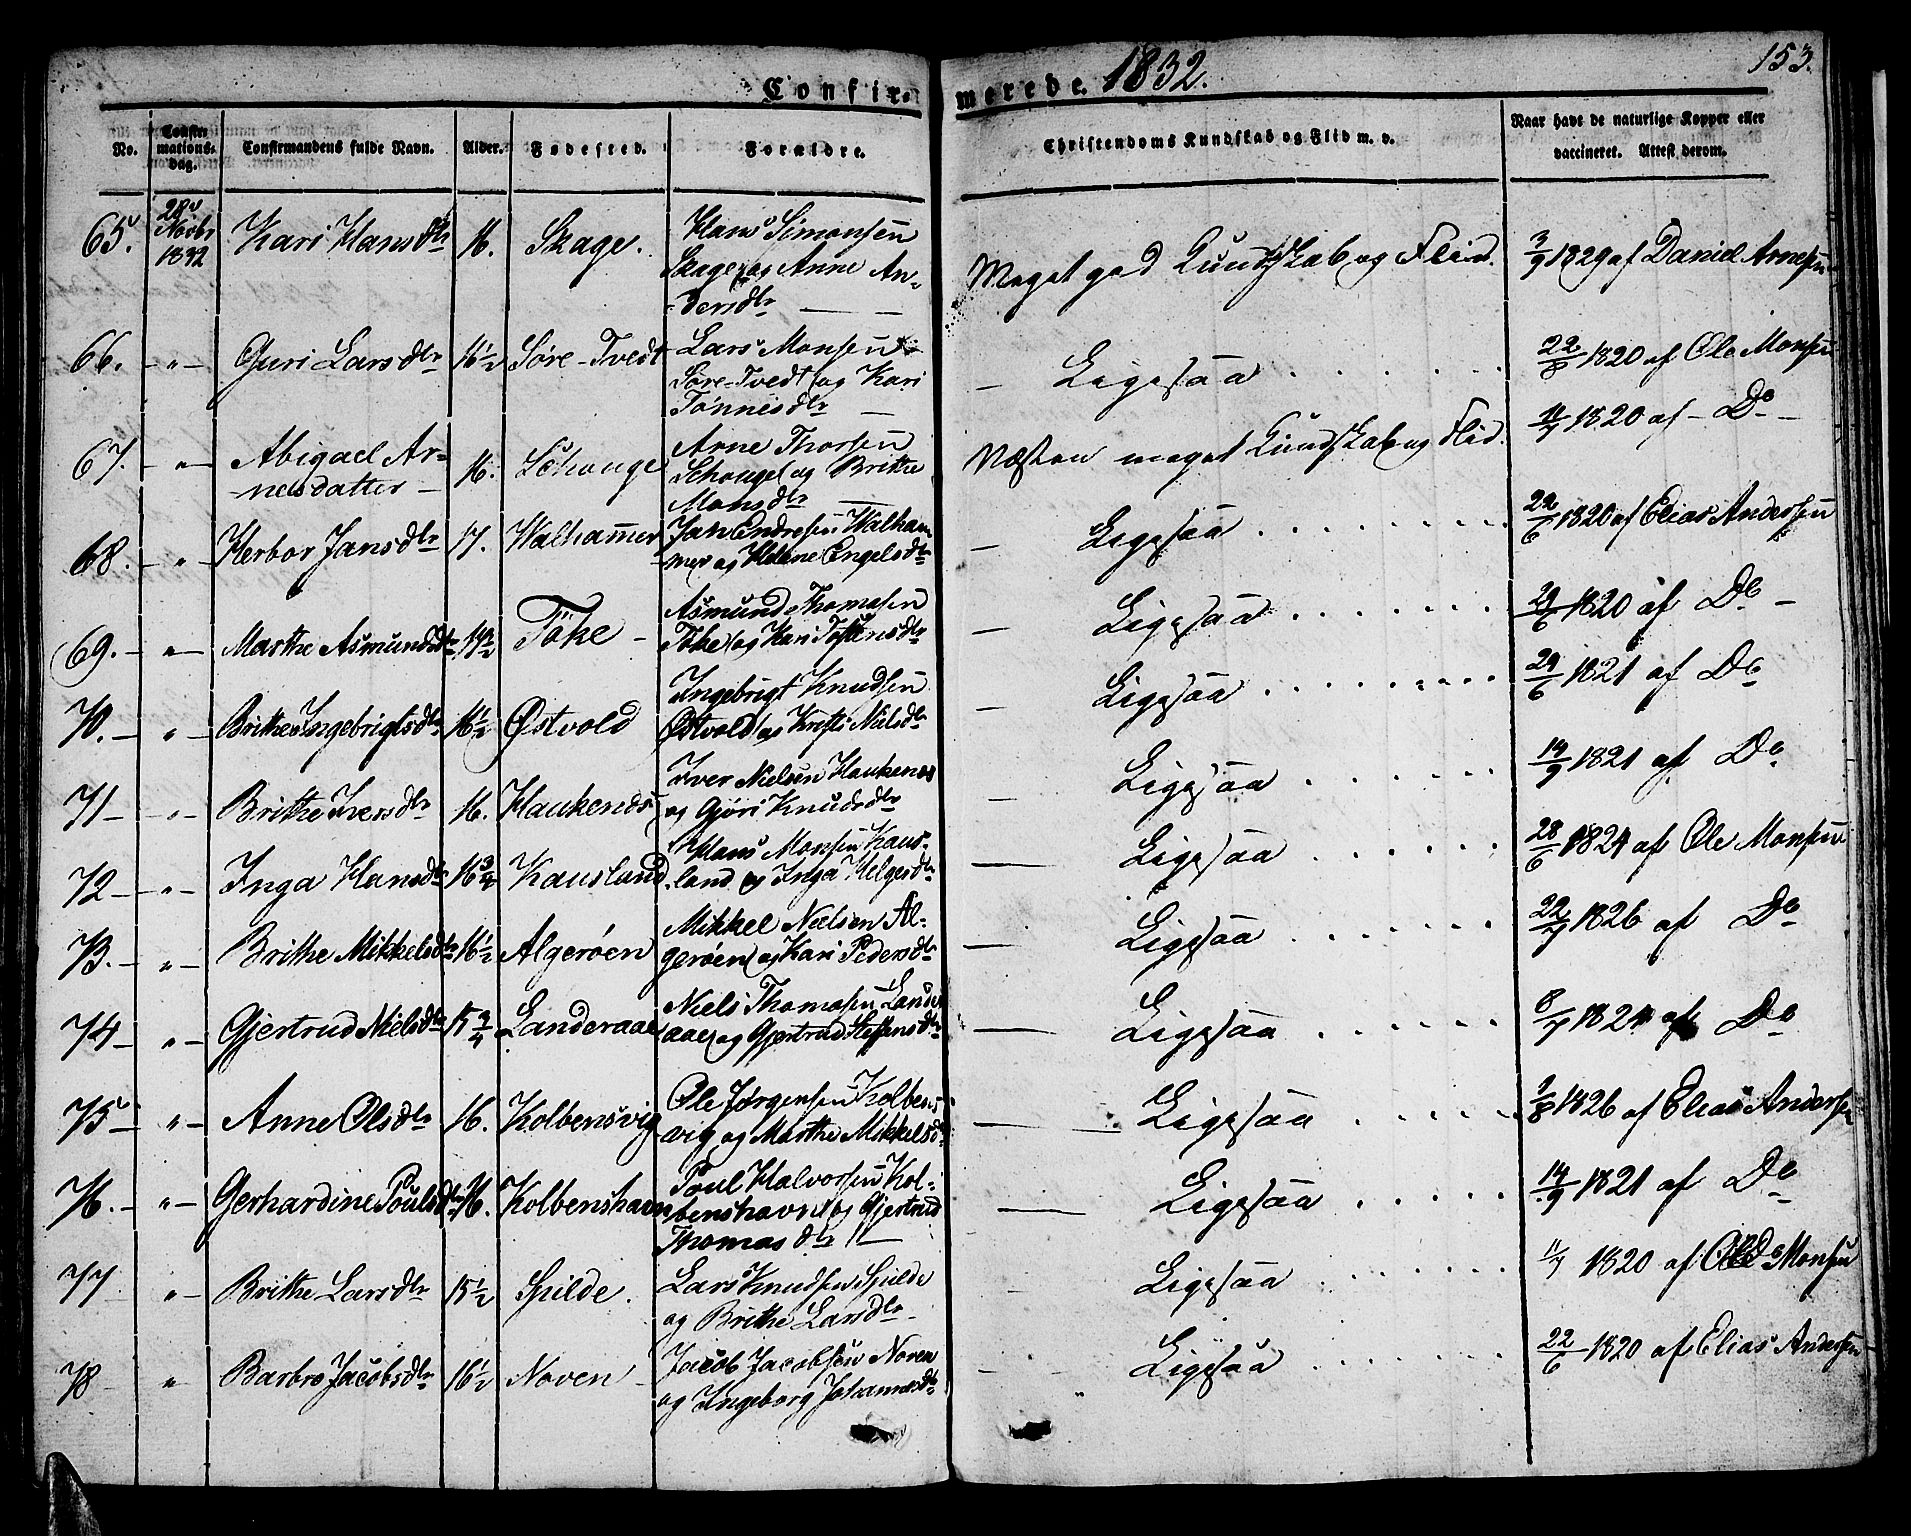 153.
Confir=
merede. 1832.
No.
Confir
mations-
dag.
Confirmandens fulde Navn.
Alder.
Fødested.
Forældre.
Christendoms Kundskab og Flid m. v.
Naar havt de naturlige Kopper eller
vaccineret. Attest derom.
65. Novbr 1832 Kari Hansdtr 16. Skage. Hans Simonsen
Skage og Anne An-
dersdtr
Meget god Kundskab og Flid. 3/9 1829 af Daniel Arnesen
66. - " - Guri Larsdtr 16 1/2 Søre-Tvedt Lars Monsen
Søre-Tvedt og Kari
Tønnesdtr
Ligesaa 22/8 1820 af Ole Monsen
67. - " - Abigael Ar-
nesdatter - 16. Schonge Arne Thorsen
Schonge og Brithe
Monsdtr
Næsten meget Kundskab og Flid. 11/7 1820 af - Do -
68. - " - Herbor Jansdtr 17. Walhammer Jan Endresen Walham
mer og Helene Engelsdtr
Ligesaa 22/6 1820 af Elias Andersen
69. - " - Marthe Asmundsdtr Töke - Asmund Thomasen
Töke og Kari
Ligesaa 1820 af Do -
70. - " - Brithe Ingebrigtsdtr 16 1/2 Østvold Ingebrigt Knudsen
Østvold og Kristi Nielsdtr
Ligesaa 29/6 1821 af Do
71 - " - Brithe Iversdtr 16. Haukenæs Iver Nielsen Haukenæs
og Gjöri Knudsdtr
Ligesaa 14/9 1821 af Do
72 - " - Inga Hansdtr 16 3/4 Kausland Hans Monsen Kaus-
land og Inga Helgesdtr
Ligesaa 28/6 1824 af Ole Monsen
73. - " - Brithe Mikkelsdtr 16 1/2 Algerøen Mikkel Nielsen Al-
gerøen og Kari Pedersdtr
Ligesaa 22/7 1826 af Do
74 - " - Gjertrud Nielsdtr 15 3/4 Landeraae Niels Thomasen Lander
aae og Gjertrud Steffensdtr
Ligesaa 8/7 1824 af Do
75 - " - Anne Olsdtr 16. Kolbensvig Ole Jørgensen Kolbens
vig og Marthe Mikkelsdtr
Ligesaa 1826 af Elias Andersen
76. - " - Gerhardine Poulsdtr 16. Kolbenshavn Poul Halvorsen Kol-
benshavn og Gjertrud
Thomasdtr
Ligesaa 14/9 1821 af Do
77 " - Brithe Larsdtr 15 1/2 Spilde. Lars Knudsen Spilde
og Brithe Larsdtr -
Ligesaa 11/7 1820 af Ole Monsen
78 " Barbro Jacobsdtr 16 1/2 Noven - Jacob Jacobsen Noven
og Ingeborg Johannesdtr
Ligesaa 22/6 1820 af Elias Andersen